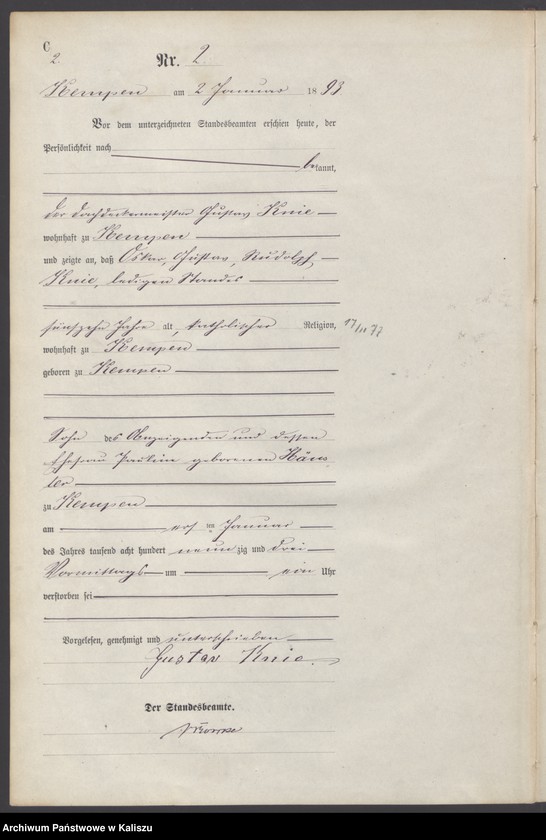 C
2.
Nr. 2
Kempen am 2 Januar 1893
Vor dem unterzeichneten Standesbeamten erschien heute, der
Persönlichkeit nach
bekannt,
der Dachdeckermeister Gustav Knie
wohnhaft zu Kempen
und zeigte an, daß Oskar, Gustav, Rudolph
Knie, ledigen Standes
fünfzehn Jahre alt, katholischer Religion, 17/11 77
wohnhaft zu Kempen
geboren zu Kempen
Sohn des Anzeigenden und dessen
Ehefrau Paulin geborenen Häus
ler
zu Kempen
am ersten Januar
des Jahres tausend acht hundert neunzig und drei
Vormittags um ein Uhr
verstorben sei
Vorgelesen, genehmigt und unterschrieben
Gustav Knie.
Der Standesbeamte.
Archiwum Państwowe w Kaliszu